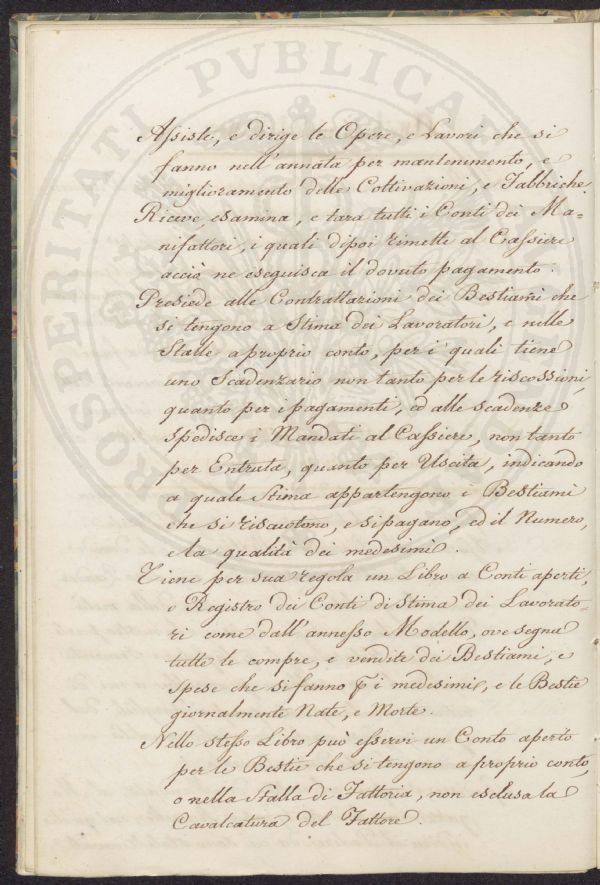 Assiste, e dirige le Opere, e Lavori che si
fanno nell'annata per mantenimento, e
miglioramento delle Coltivazioni, e Fabbriche.
Riceve, esamina, e tara tutti i Conti dei Ma=
nifattori, i quali dipoi rimette al Cassiere
acciò ne eseguisca il dovuto pagamento.
Presiede alle Contrattazioni dei Bestiami che
si tengono a Stima dei Lavoratori, e nelle
Stalle a proprio conto, per i quali tiene
uno Scadenzario non tanto per le riscossioni,
quanto per i pagamenti, ed alle scadenze
spedisce i Mandati al Cassiere, non tanto
per Entrata, quanto per Uscita, indicando
a quale Stima appartengono i Bestiami
che si riscuotono, e si pagano, ed il Numero,
e la qualità dei medesimi.
Tiene per sua regola un Libro a Conti aperti,
o Registro dei Conti di Stima dei Lavorato=
ri come dall'annesso Modello, ove segna
tutte le compre, e vendite dei Bestiami, e
spese che si fanno ꝑ i medesimi, e le Bestie
giornalmente Nate, e Morte.
Nello stesso Libro può esservi un Conto aperto
per le Bestie che si tengono a proprio conto,
o nella Stalla di Fattoria, non esclusa la
Cavalcatura del Fattore.
PROSPERITATI PVBLICAE